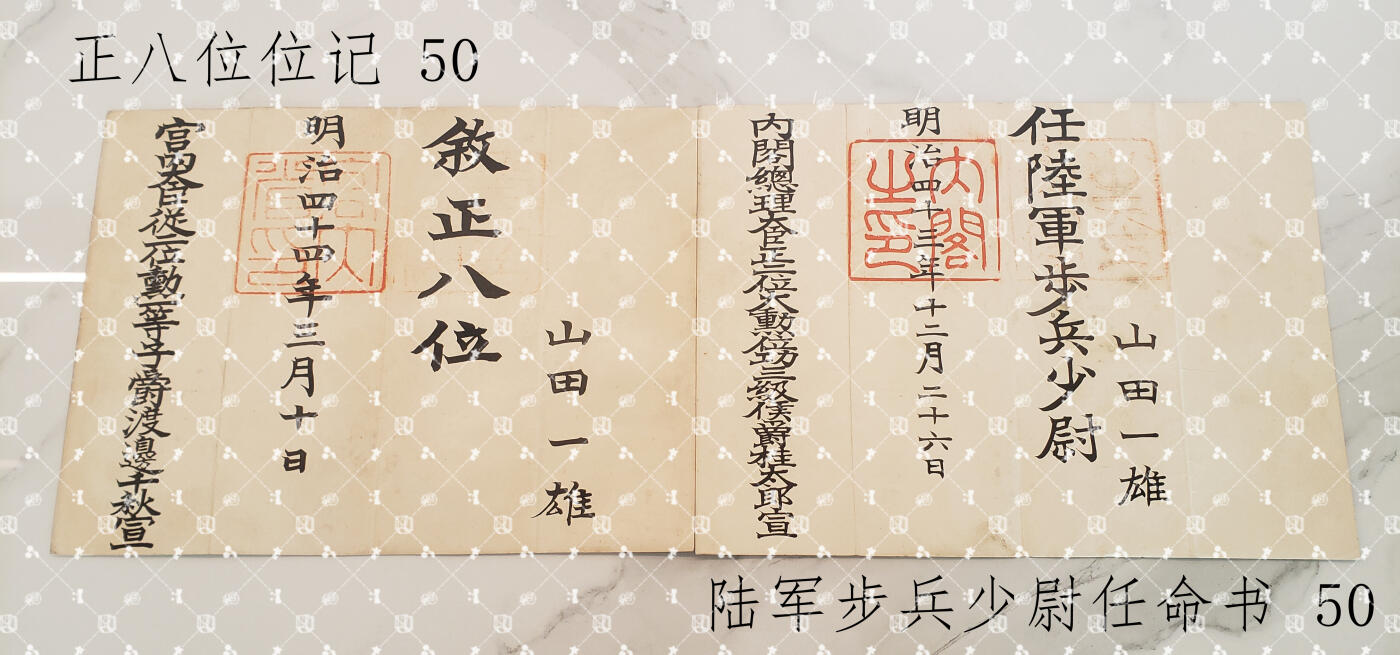 正八位位记 50
山田一雄
任陸軍歩兵少尉
明治四十三年十二月二十六日
内閣之印
内閣總理大臣正二位大勲位功三級侯爵桂太郎宣
山田一雄
敘正八位
明治四十四年三月十日
宮内大臣從二位勲一等子爵渡邊千秋宣
陆军步兵少尉任命书 50